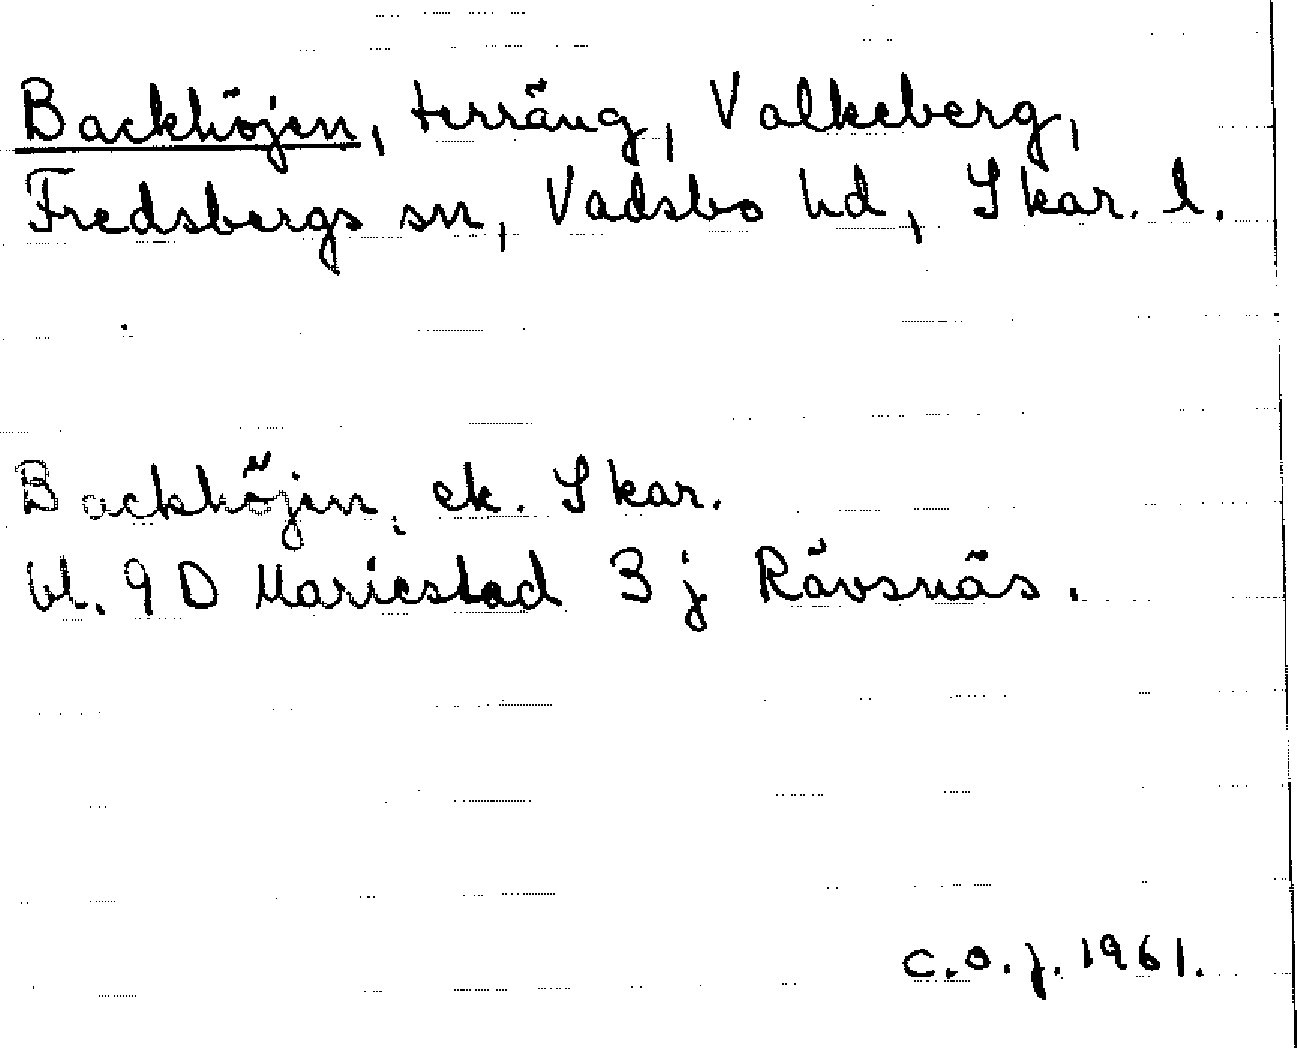 Backhöjen, terräng, Valkeberg,
Fredsbergs sn, Vadsbo hd, Skar. l.
Backhöjen, ek. Skar.
bl. 9 D Mariestad 3 j Rävsnäs.
C.O.J. 1961.